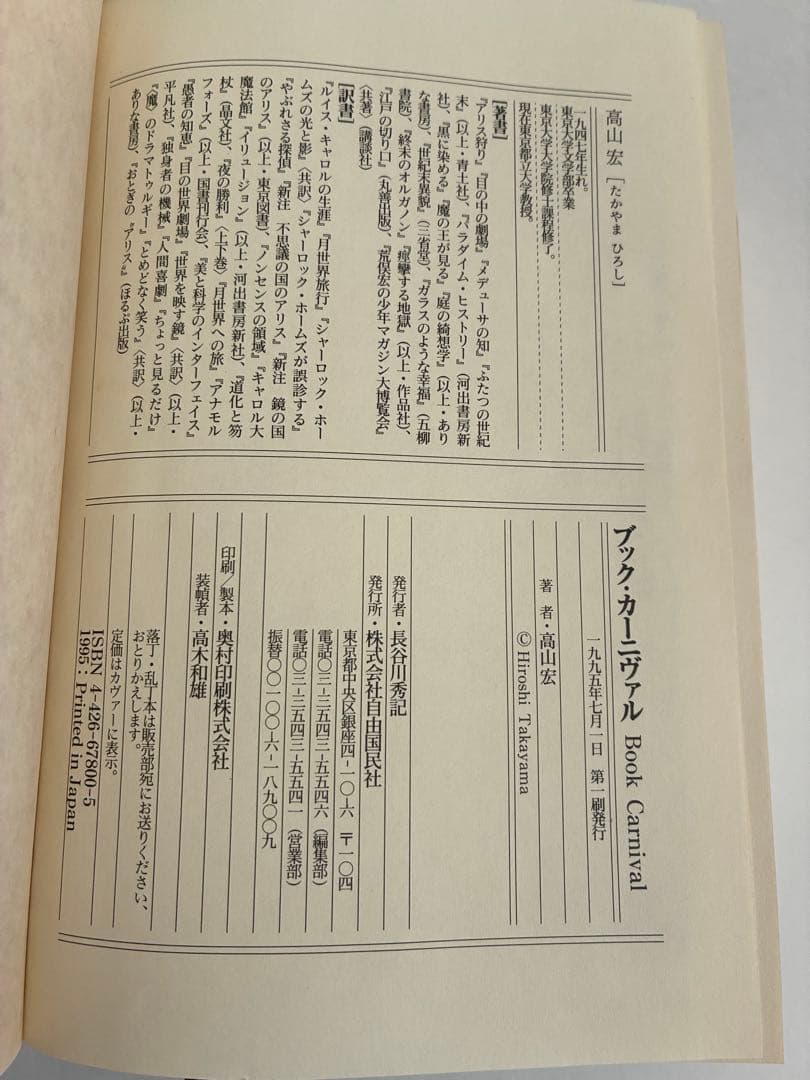 高山 宏 [たかやま ひろし]
一九四七年生れ。
東京大学文学部卒業
東京大学大学院修士課程修了。
現在東京都立大学教授。
[著書]
『アリス狩り』『目の中の劇場』『メデューサの知』『ふたつの世紀
末』(以上・青土社)、『パラダイム・ヒストリー』(河出書房新
社)、『黒に染める』『魔の王が見る』『庭の綺想学』(以上・あり
な書房)、『世紀末異貌』(三省堂)、『ガラスのような幸福』(五柳
書院)、『終末のオルガノン』『痙攣する地獄』(以上・作品社)、
『江戸の切り口』(丸善出版)、『荒俣宏の少年マガジン大博覧会』
〈共著〉(講談社)
[訳書]
『ルイス・キャロルの生涯』『月世界旅行』『シャーロック・ホー
ムズの光と影』〈共訳〉『シャーロック・ホームズが誤診する』
『やぶれさる探偵』『新注 不思議の国のアリス』『新注 鏡の国
のアリス』(以上・東京図書)、『ノンセンスの領域』『キャロル大
魔法館』『イリュージョン』(以上・河出書房新社)、『道化と笏
杖』(晶文社)、『夜の勝利』〈上下巻〉『月世界への旅』『アナモル
フォーズ』(以上・国書刊行会)、『美と科学のインターフェイス』
『愚者の知恵』『目の世界劇場』『世界を映す鏡』〈共訳〉(以上・
平凡社)、『独身者の機械』『人間喜劇』『ちょっと見るだけ』
『〈魔〉のドラマトゥルギー』『とめどなく笑う』〈共訳〉(以上・
ありな書房)、『おとぎの『アリス』』(ほるぷ出版)
ブック・カーニヴァル Book Carnival
一九九五年七月一日 第一刷発行
著 者・高山宏
© Hiroshi Takayama
発行者・長谷川秀記
発行所・株式会社自由国民社
東京都中央区銀座四-一〇-六 〒一〇四
電話〇三-三五四三-五五四六(編集部)
電話〇三-三五四三-五五四一(営業部)
振替〇〇一〇〇-六-一八九〇〇九
印刷/製本・奥村印刷株式会社
装幀者・高木和雄
落丁・乱丁本は販売部宛にお送りください、
おとりかえします。
定価はカヴァーに表示。
ISBN 4-426-67800-5
1995 : Printed in Japan